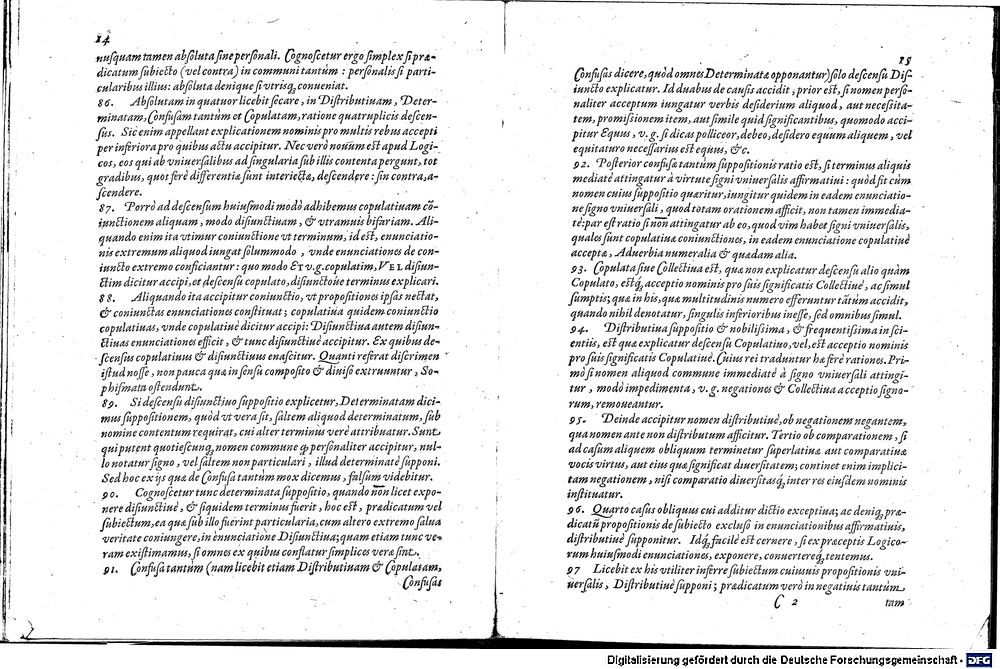 14
nusquam tamen absoluta sine personali. Cognoscetur ergo simplex si præ-
dicatum subiecto (vel contra) in communi tantùm: personalis si parti-
cularibus illius: absoluta denique si utrisq́; conueniat.
86. Absolutam in quatuor licebit secare, in Distributiuam, Deter-
minatam, Confusam tantùm et Copulatam, ratione quatruplicis descen-
sus. Sic enim appellant explicationem nominis pro multis rebus accepti
per inferiora pro quibus actu accipitur. Nec verò nouum est apud Logi-
cos, eos qui ab vniuersalibus ad singularia sub illis contenta pergunt, tot
gradibus, quot ferè differentiæ sunt interiectæ, descendere: sin contra, a-
scendere.
87. Porrò ad descensum huiusmodi modò adhibemus copulatiuam cō-
iunctionem aliquam, modo disiunctiuam, & vtramuis bifariam. Ali-
quando enim ita vtimur coniunctione vt terminum, id est, enunciatio-
nis extremum aliquod iungat solummodo, vnde enunciationes de con-
iuncto extremo conficiantur: quo modo ET v.g. copulatim, VEL disiun-
ctim dicitur accipi, et descensu copulato, disiunctoue terminus explicari.
88. Aliquando ita accipitur coniunctio, vt propositiones ipsas nectat,
& coniunctas enunciationes constituat; copulatiua quidem coniunctio
copulatiuas, vnde copulatiuè dicitur accipi: Disiunctiua autem disiun-
ctiuas enunciationes efficit, & tunc disiunctiuè accipitur. Ex quibus de-
scensus copulatiuus & disiunctiuus enascitur. Quanti referat discrimen
istud nosse, non pauca quæ in sensu composito & diuiso extruuntur, So-
phismata ostendunt.
89. Si descensu disiunctiuo suppositio explicetur, Determinatam dici-
mus suppositionem, quòd vt vera sit, saltem aliquod determinatum, sub
nomine contentum requirat, cui alter terminus verè attribuatur. Sunt
qui putent quotiescunq; nomen commune q̨ personaliter accipitur, nul-
lo notatur signo, vel saltem non particulari, illud determinatè supponi.
Sed hoc ex ijs quæ de Confusa tantùm mox dicemus, falsum videbitur.
90. Cognoscetur tunc determinata suppositio, quando nōn licet expo-
nere disiunctiuè, & siquidem terminus fuerit, hoc est, prædicatum vel
subiectum, ea quæ sub illo fuerint particularia, cum altero extremo salua
veritate coniungere, in enunciatione Disiunctiua; quam etiam tunc ve-
ram existimamus, si omnes ex quibus conflatur simplices veræ sint.
91. Confusa tantùm (nam licebit etiam Distributiuam & Copulatam,
Confusas
15
Confusas dicere, quòd omnes Determinatæ opponantur) solo descensu Dis-
iuncto explicatur. Id duabus de causis accidit, prior est, si nomen perso-
naliter acceptum iungatur verbis desiderium aliquod, aut necessita-
tem, promissionem item, aut simile quid significantibus, quomodo acci-
pitur Equus, v. g. si dicas polliceor, debeo, desidero equum aliquem, vel
equitaturo necessarius est equus, &c.
92. Posterior confusæ tantùm suppositionis ratio est, si terminus aliquis
mediatè attingatur à virtute signi vniuersalis affirmatiui: quòd fit cùm
nomen cuius suppositio quæritur, iungitur quidem in eadem enunciatio-
ne signo vniuersali, quod totam orationem afficit, non tamen immedia-
tè: par est ratio si nōn attingatur ab eo, quod vim habet signi vniuersalis,
quales sunt copulatiuæ coniunctiones, in eadem enunciatione copulatiuè
acceptæ, Aduerbia numeralia & quædam alia.
93. Copulata siue Collectiua est, quæ non explicatur descensu alio quàm
Copulato, estq́; acceptio nominis pro suis significatis Collectiuè, ac simul
sumptis; quæ in his, quæ multitudinis numero efferuntur tātùm accidit,
quando nihil denotatur, singulis inferioribus inesse, sed omnibus simul.
94. Distributiua suppositio & nobilissima, & frequentissima in sci-
entiis, est quæ explicatur descensu Copulatiuo, vel, est acceptio nominis
pro suis significatis Copulatiuè. Cuius rei traduntur hæ ferè rationes. Pri-
mò si nomen aliquod commune immediatè à signo vniuersali attingi-
tur, modò impedimenta, v. g. negationes & Collectiua acceptio signo-
rum, remoueantur.
95. Deinde accipitur nomen distributiuè, ob negationem negantem,
qua nomen ante non distributum afficitur. Tertio ob comparationem, si
ad casum aliquem obliquum terminetur superlatiuæ aut comparatiuæ
vocis virtus, aut eius quæ significat diuersitatem; continet enim implici-
tam negationem, nisi comparatio diuersitasq́; inter res eiusdem nominis
instituatur.
96. Quarto casus obliquus cui additur dictio exceptiua; ac deniq; præ-
dicatū propositionis de subiecto excluso in enunciationibus affirmatiuis,
distributiuè supponitur. Idq́; facilè est cernere, si ex præceptis Logico-
rum huiusmodi enunciationes, exponere, conuertereq́; tentemus.
97 Licebit ex his vtiliter inferre subiectum cuiusuis propositionis vni-
uersalis, Distributiuè supponi; prædicatum verò in negatiuis tantùm
C 2
tam
Digitalisierung gefördert durch die Deutsche Forschungsgemeinschaft - DFG